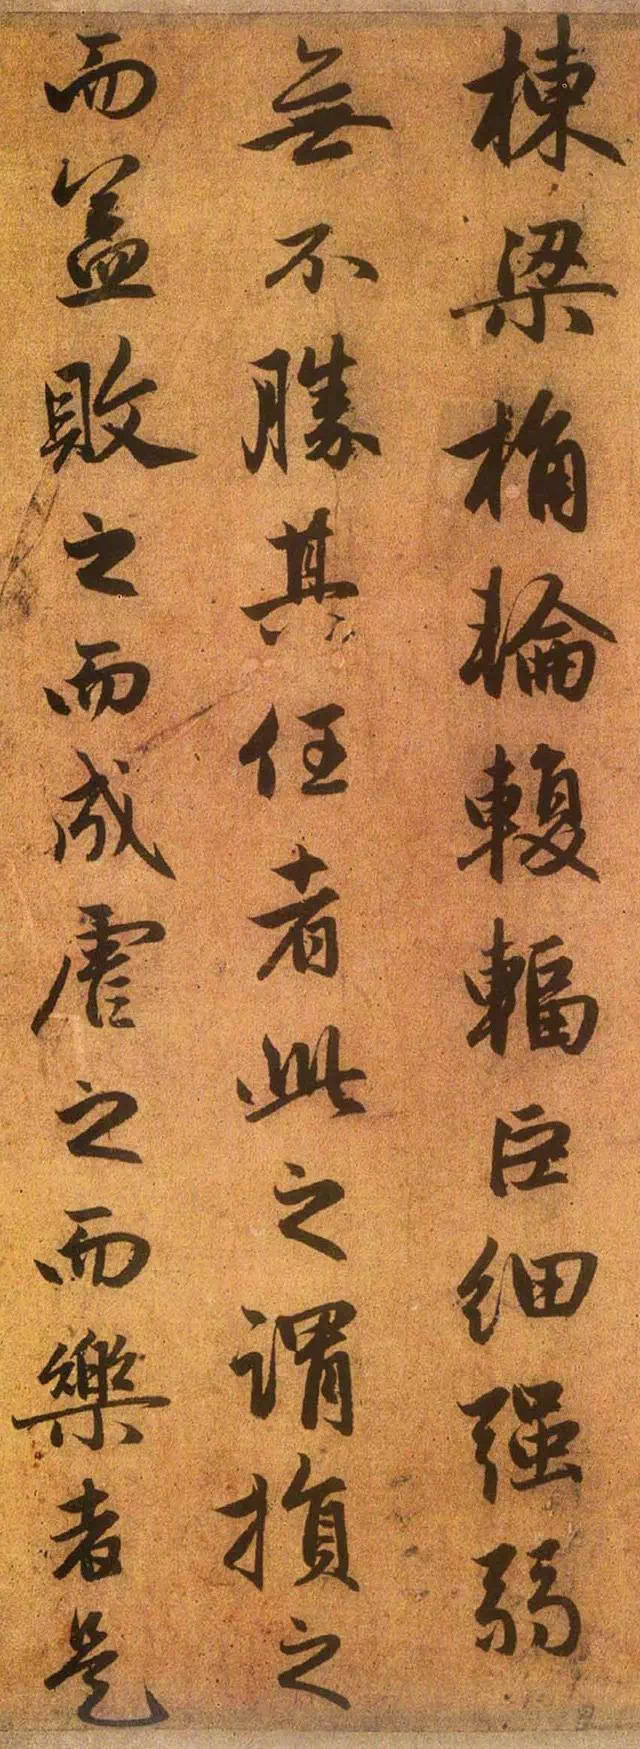 棟梁桷輪輹輻巨細强弱
無不勝其任者此之謂損之
而益敗之而成虐之而樂者是